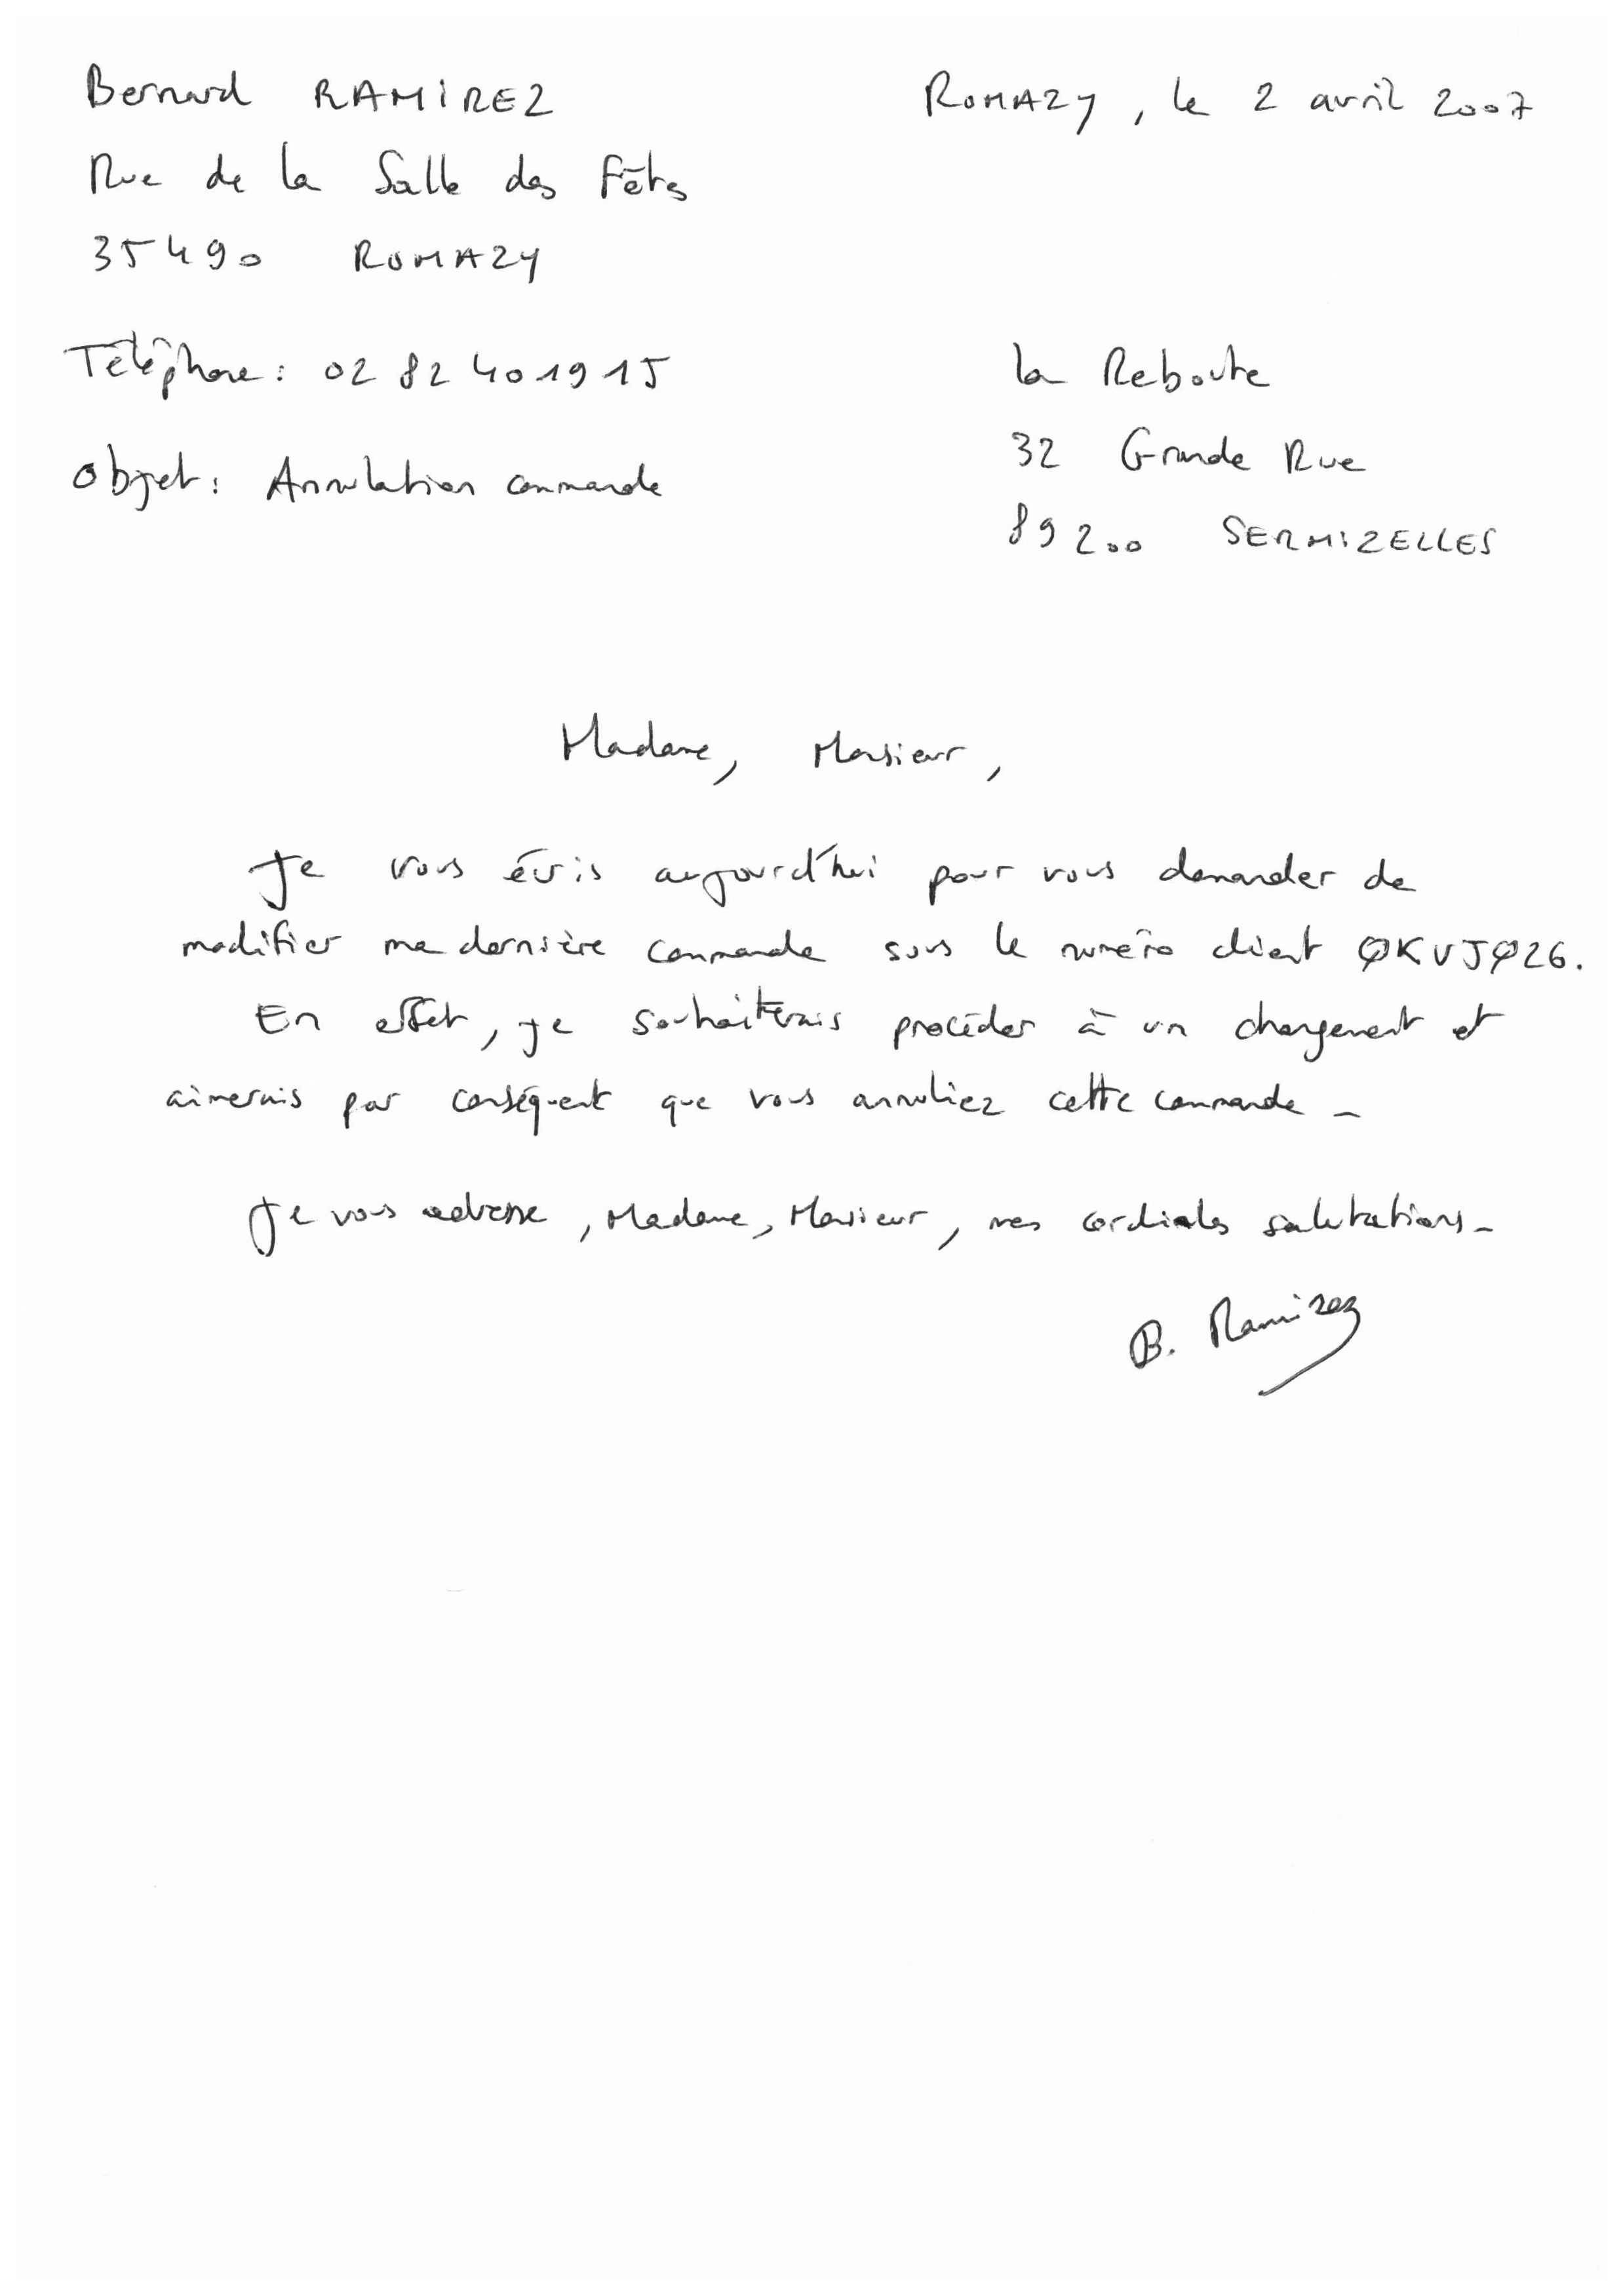 Bernard RAMIREZ
Rue de la Salle des Fêtes
35490 ROMAZY
Téléphone : 02 82 40 19 15
Objet : Annulation commande
ROMAZY, le 2 avril 2007
La Reboute
32 Grande Rue
89200 SERMIZELLES
Madame, Monsieur,
Je vous écris aujourd'hui pour vous demander de
modifier ma dernière commande sous le numéro client ØKVJØ26.
En effet, je souhaiterais procéder à un changement et
aimerais par conséquent que vous annuliez cette commande.
Je vous adresse, Madame, Monsieur, mes cordiales salutations.
B. Ramirez